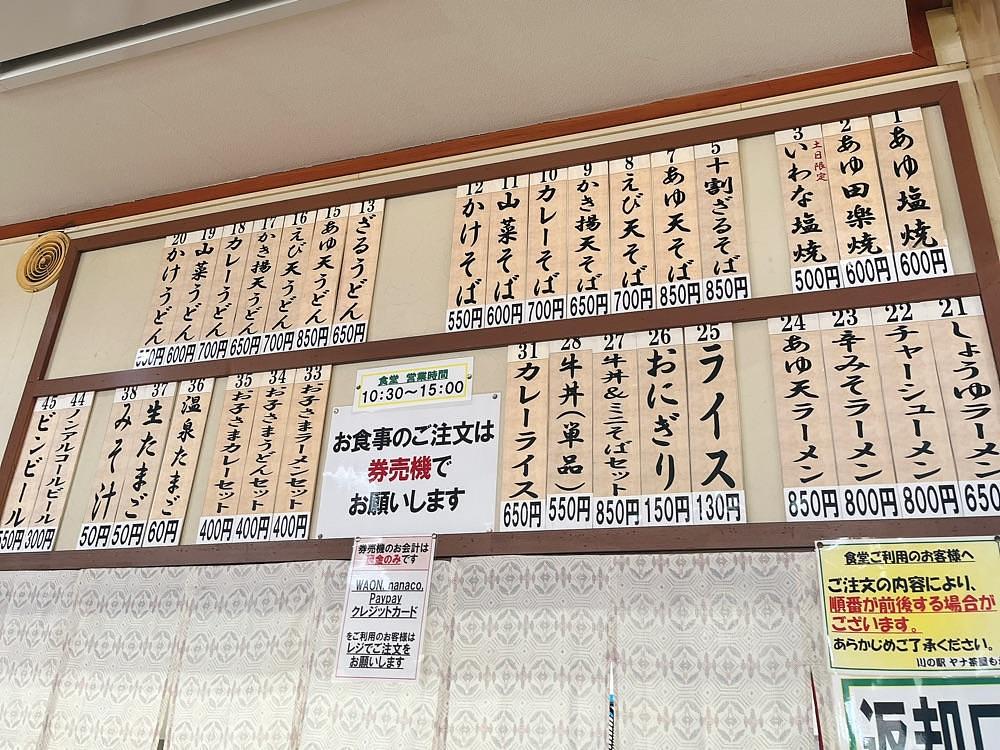 1 あゆ塩焼 600円
2 あゆ田楽焼 600円
3 いわな塩焼 土日限定 500円
5 十割ざるそば 850円
7 あゆ天そば 850円
8 えび天そば 700円
9 かき揚天そば 650円
10 カレーそば 700円
11 山菜そば 600円
12 かけそば 550円
13 ざるうどん 650円
15 あゆ天うどん 850円
16 えび天うどん 700円
17 かき揚天うどん 650円
18 カレーうどん 700円
19 山菜うどん 600円
20 かけうどん
21 しょうゆラーメン 650
22 チャーシューメン 800円
23 辛みそラーメン 800円
24 あゆ天ラーメン 850円
25 ライス 130円
26 おにぎり 150円
27 牛丼&ミニそばセット 850円
28 牛丼(単品) 550円
31 カレーライス 650円
食堂 営業時間
10:30～15:00
お食事のご注文は
券売機で
お願いします
33 お子さまラーメンセット 400円
34 お子さまうどんセット 400円
35 お子さまカレーセット 400円
36 温泉たまご 60円
37 生たまご 50円
38 みそ汁 50円
44 ノンアルコールビール 300円
45 ビンビール 550円
券売機のお会計は
現金のみです
WAON, nanaco,
Paypay
クレジットカード
をご利用のお客様は
レジでご注文を
お願いします
食堂ご利用のお客様へ
ご注文の内容により、
順番が前後する場合が
ございます。
あらかじめご了承ください。
川の駅 ヤナ茶屋も
返却口